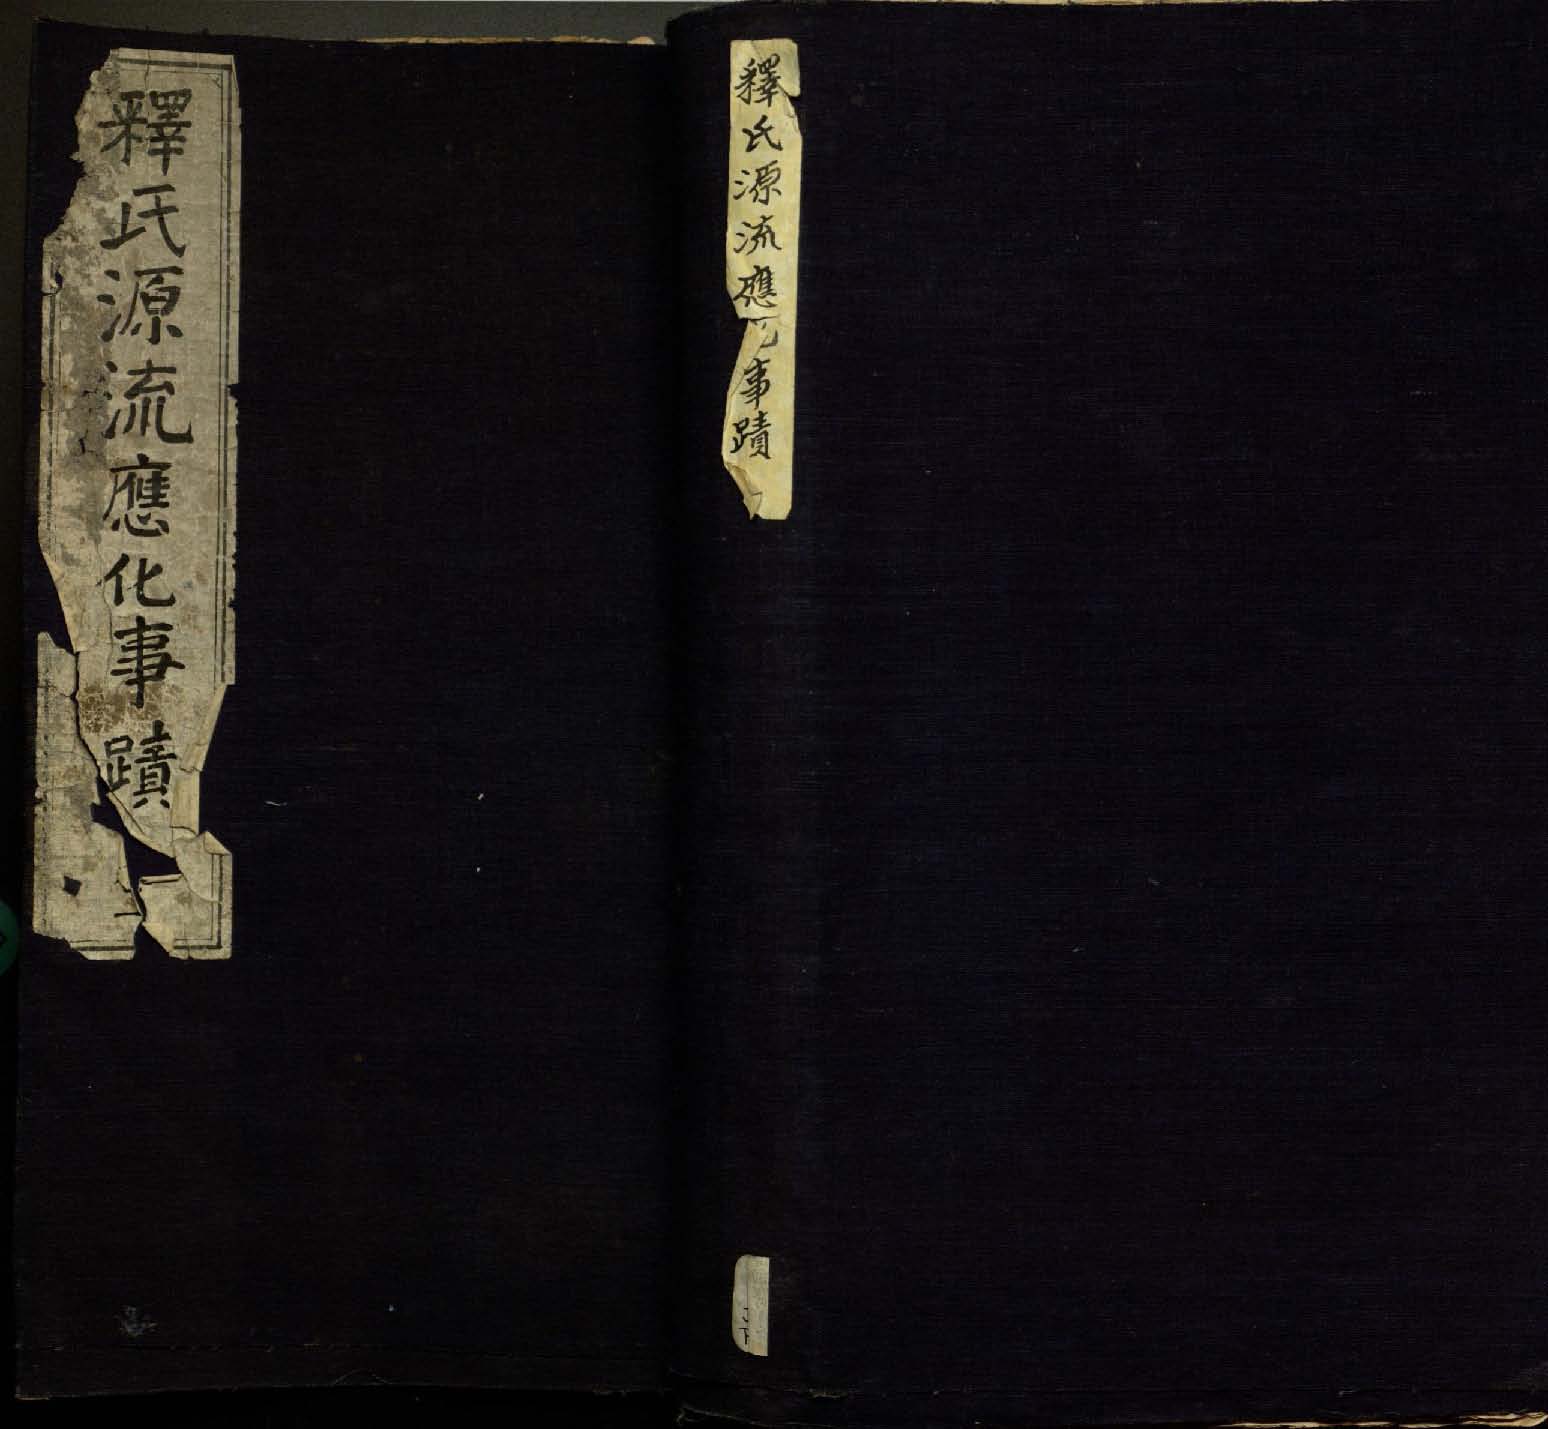 釋氏源流應化事蹟
釋氏源流應事蹟
下